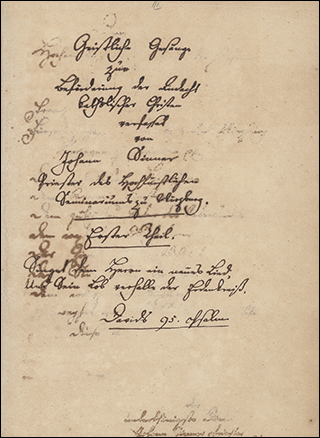 Geistliche Gesänge
zur
Beförderung der Andacht
catholischer Christen
verfasset
von
Johann Sinner
Priester des Hochfürstlichen
Seminariums zu Würzburg.
Erster Theil.
Singet dem Herrn ein neues Lied.
Und Sein Lob der
Davids 95. Psalm